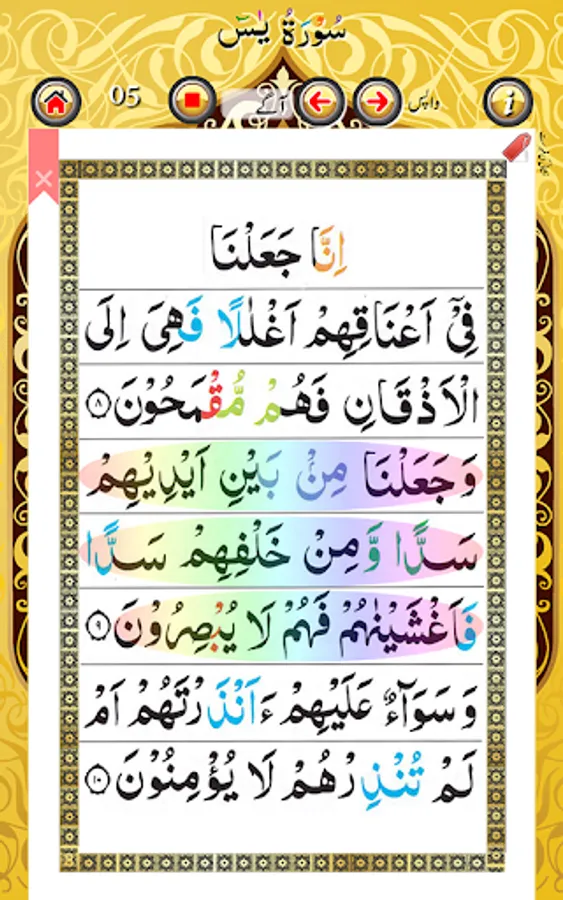 سُوْرَةُ يٰسٓ
05 آگے واپس i
اِنَّا جَعَلْنَا
فِيْۤ اَعْنَاقِهِمْ اَغْلٰلًا فَهِيَ اِلَى
الْاَذْقَانِ فَهُمْ مُّقْمَحُوْنَ ۝۸
وَجَعَلْنَا مِنْۢ بَيْنِ اَيْدِيْهِمْ
سَدًّا وَّمِنْ خَلْفِهِمْ سَدًّا
فَاَغْشَيْنٰهُمْ فَهُمْ لَا يُبْصِرُوْنَ ۝۹
وَسَوَآءٌ عَلَيْهِمْ ءَاَنْذَرْتَهُمْ اَمْ
لَمْ تُنْذِرْهُمْ لَا يُؤْمِنُوْنَ ۝۱۰